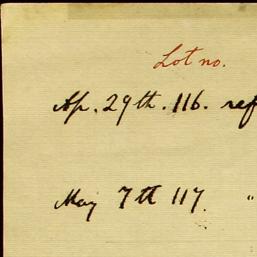 Lot no.
Ap. 29th. 116. ref
May 7th 117. "